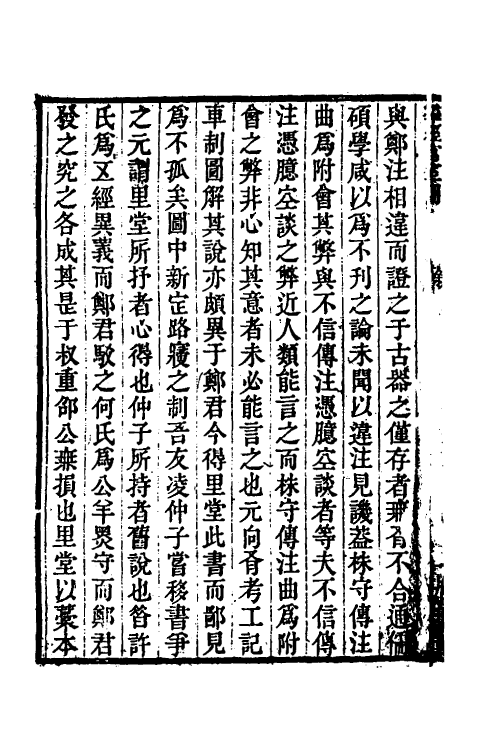 與鄭注相違而證之于古器之僅存者無有不合通儒
碩學咸以爲不刊之論未聞以違注見譏葢株守傳注
曲爲附會其弊與不信傳注憑臆空談者等夫不信傳
注憑臆空談之弊近人類能言之而株守傳注曲爲附
會之弊非心知其意者未必能言之也元向有考工記
車制圖解其說亦頗異于鄭君今得里堂此書而鄙見
爲不孤矣圖中新定路寢之制吾友凌仲子嘗移書爭
之元謂里堂所抒者心得也仲子所持者舊說也昔許
氏爲五經異義而鄭君駁之何氏爲公羊墨守而鄭君
發之究之各成其是于叔重邵公無損也里堂以藁本